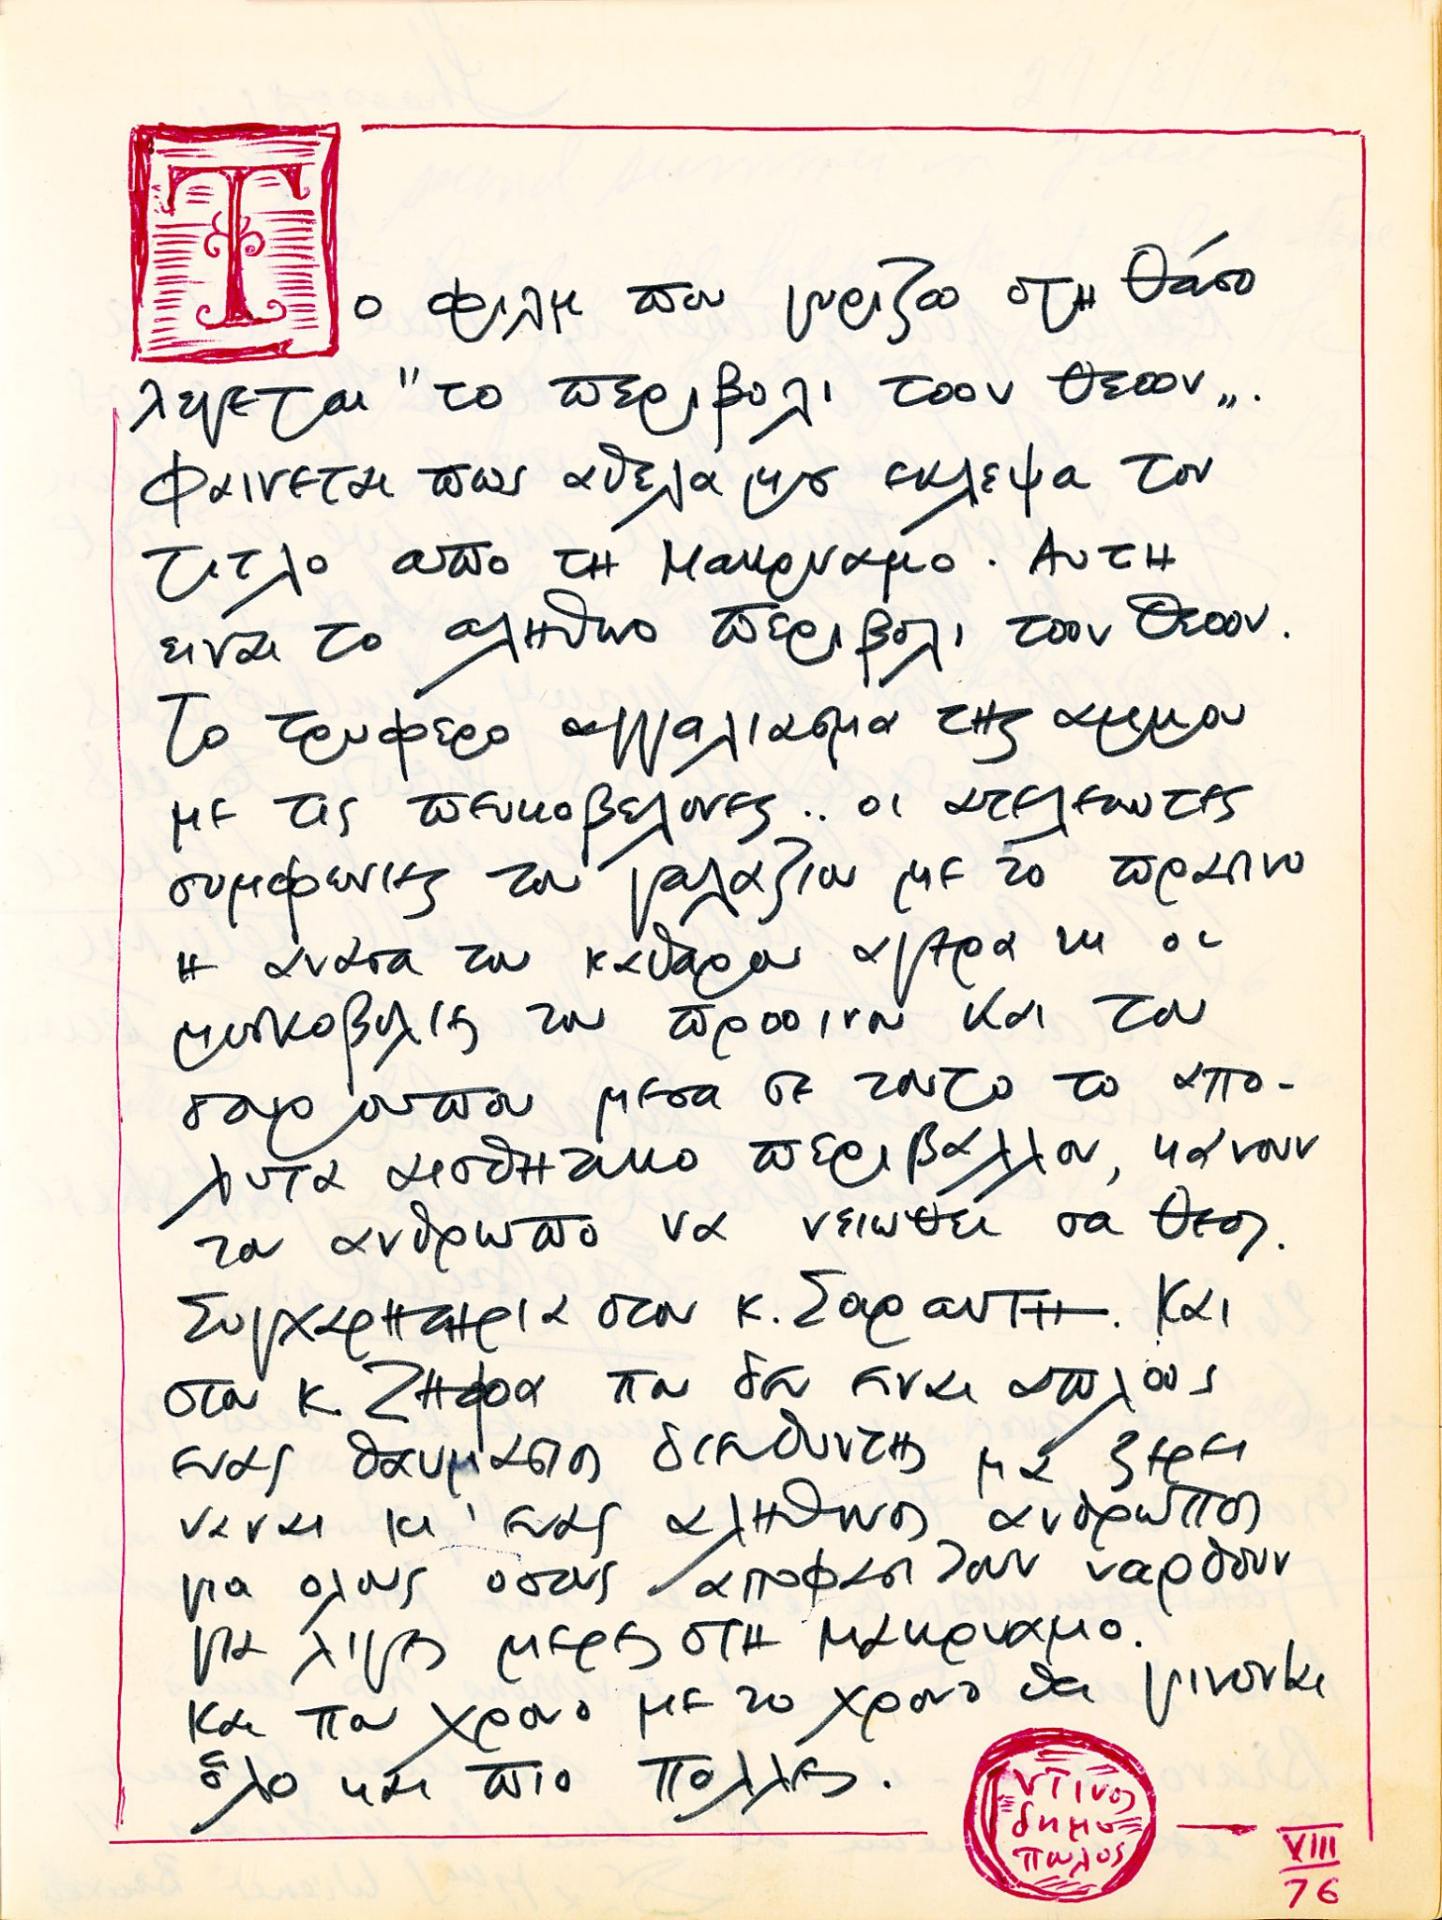 Το φιλμ που γυριζω στη Θάσο
λεγεται "το περιβολι των θεων„.
Φαινεται πως αθελά μου εκλεψα τον
τιτλο απο τη Μακρυαμο. Αυτη
ειναι το αληθινο περιβολι των Θεων.
Το τρυφερο αγγαλιασμα της αμμου
με τις πευκοβελονες.. οι ατελειωτες
συμφωνιες του γαλαζιου με το πρασινο
η ανασα του καθαρου αγερα κι οι
μοσκοβολιες του πρωινου και του
σουρουπου μεσα σε τουτο το απο-
λυτα αισθητικο περιβαλλον, κάνουν
τον ανθρωπο να νειωθει σα θεος.
Συγχαρητηρια στον κ. Σαραντη. Και
στον κ. Ζηφα που δεν ειναι απλους
ενας θαυμασιος διευθυντης μα ξερει
ναναι κι' ενας αληθινος ανθρωπος
για ολους οσους αποφασιζουν ναρθουν
για λιγες μερες στη Μακρυαμο.
Και που χρονο με το χρονο θα γινουνται
όλο και πιο πολλές.
ντινος
δημο
πουλος
VIII
76